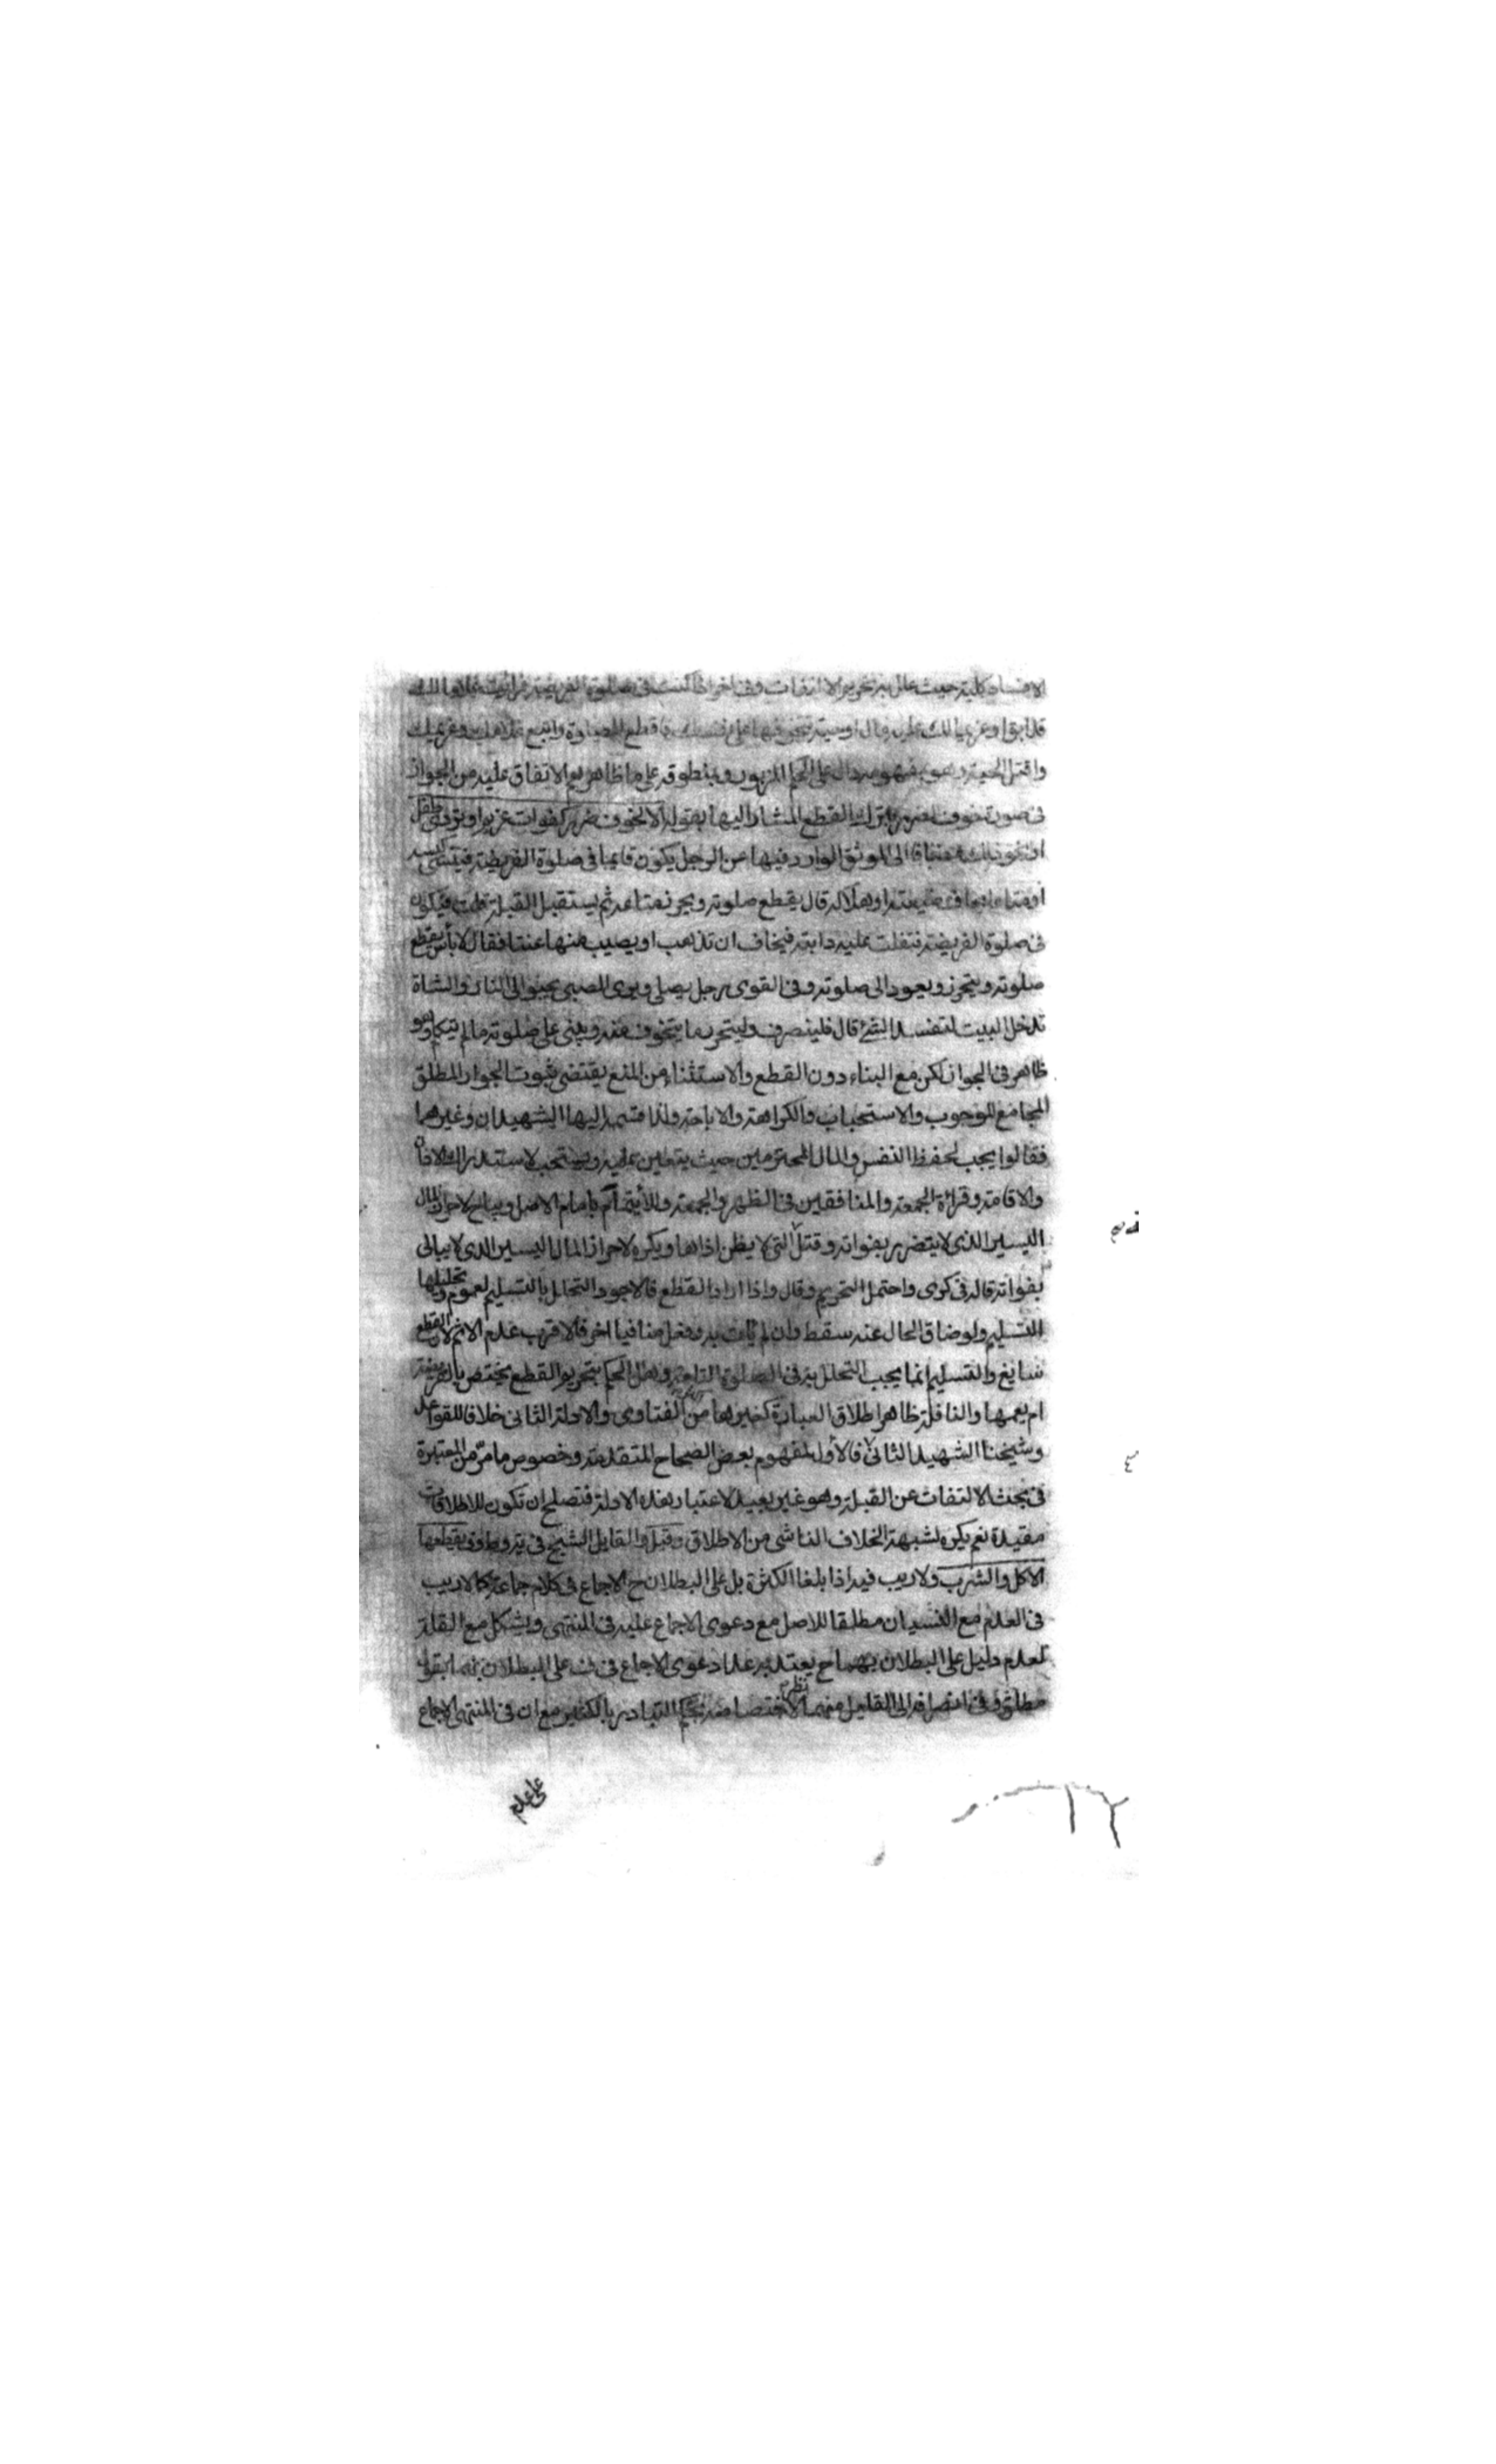 كلية حيث علل به تحريم الالتفات وفي اخر اذا كنت في صلوة الفريضة فرايت غلاما لك
قد ابق او غريما لك عليه مال او حية تتخوفها على نفسك فاقطع الصلوة واتبع غلامك وغريمك
واقتل الحية وهو بمفهومه دال على الحكم المزبور وبمنطوقه على ما ظاهرهم الاتفاق عليه من الجواز
في صورة خوف الضرر بترك القطع المشار اليها بقوله الا لخوف ضرر كفوات غريم او تردى طفل
او نحو ذلك مضافا الى الموثق الوارد فيها عن الرجل يكون قايما في صلوة الفريضة فينسى كيسه
او متاعا يخاف ضيعته او هلاكه قال يقطع صلوته ويحرز متاعه ثم يستقبل القبلة قلت فيكون
في صلوة الفريضة فتفلت عليه دابته فيخاف ان تذهب او يصيب منها عنتا فقال لا بأس بقطع
صلوته ويتحرز ويعود الى صلوته وفي القوى رجل يصلي ويرى الصبي يحبو الى النار والشاة
تدخل البيت لتفسد الشئ قال فلينصرف وليتحرز ما يتخوف منه ويبني على صلوته ما لم يتكلم وهو
ظاهر في الجواز لكن مع البناء دون القطع والاستثناء من المنع يقتضى ثبوت الجواز المطلق
المجامع للوجوب والاستحباب والكراهة والاباحة ولذا قسمه اليها الشهيدان وغيرهما
فقالوا يجب لحفظ النفس والمال المحترمين حيث يتعين عليه ويستحب لاستدراك الاذان
والاقامة وقرائة الجمعة والمنافقين في الظهر والجمعة وللأيتمام بامام الاصل ويباح لاحراز المال
اليسير الذى لا يتضرر بفواته وقتل التي لا يظن اذاها ويكره لاحراز المال اليسير الذى لا يبالى
بفواته قاله في كرى واحتمل التحريم وقال واذا اراد القطع فالاجود التحلل بالتسليم لعموم وتحليلها
التسليم ولو ضاق الحال عنه سقط وان لم يأت به وفعل منافيا اخر فالاقرب عدم الاثم لان القطع
سايغ والتسليم انما يجب التحلل به في الصلوة التامة وهل الحكم بتحريم القطع يختص بالفريضة
ام يعمها والنافلة ظاهر اطلاق العبارة كغيرها من الفتاوى والادلة الثاني خلافا للقواعد
وشيخنا الشهيد الثاني فالأول لمفهوم بعض الصحاح المتقدمة وخصوص ما مرّ من المعتبرة
في بحث الالتفات عن القبلة وهو غير بعيد لاعتبار هذه الادلة فتصلح ان تكون للاطلاقات
مقيدة نعم يكره لشبهة الخلاف الناشى من الاطلاق وقيل والقايل الشيخ في ية وط وف يقطعها
الاكل والشرب ولا ريب فيه اذا بلغا الكثرة بل على البطلان ح الاجماع في كلام جماعة كما لا ريب
في العدم مع النسيان مطلقا للاصل مع دعوى الاجماع عليه في المنتهى ويشكل مع القلة
لعدم دليل على البطلان بهما ح يعتد به عدا دعوى الاجماع في ف على البطلان بهما بقول
مطلق وفي انصرافه الى القليل منهما نظر لاختصاصه بحكم التبادر بالكثير مع ان في المنتهى الاجماع
على عدم